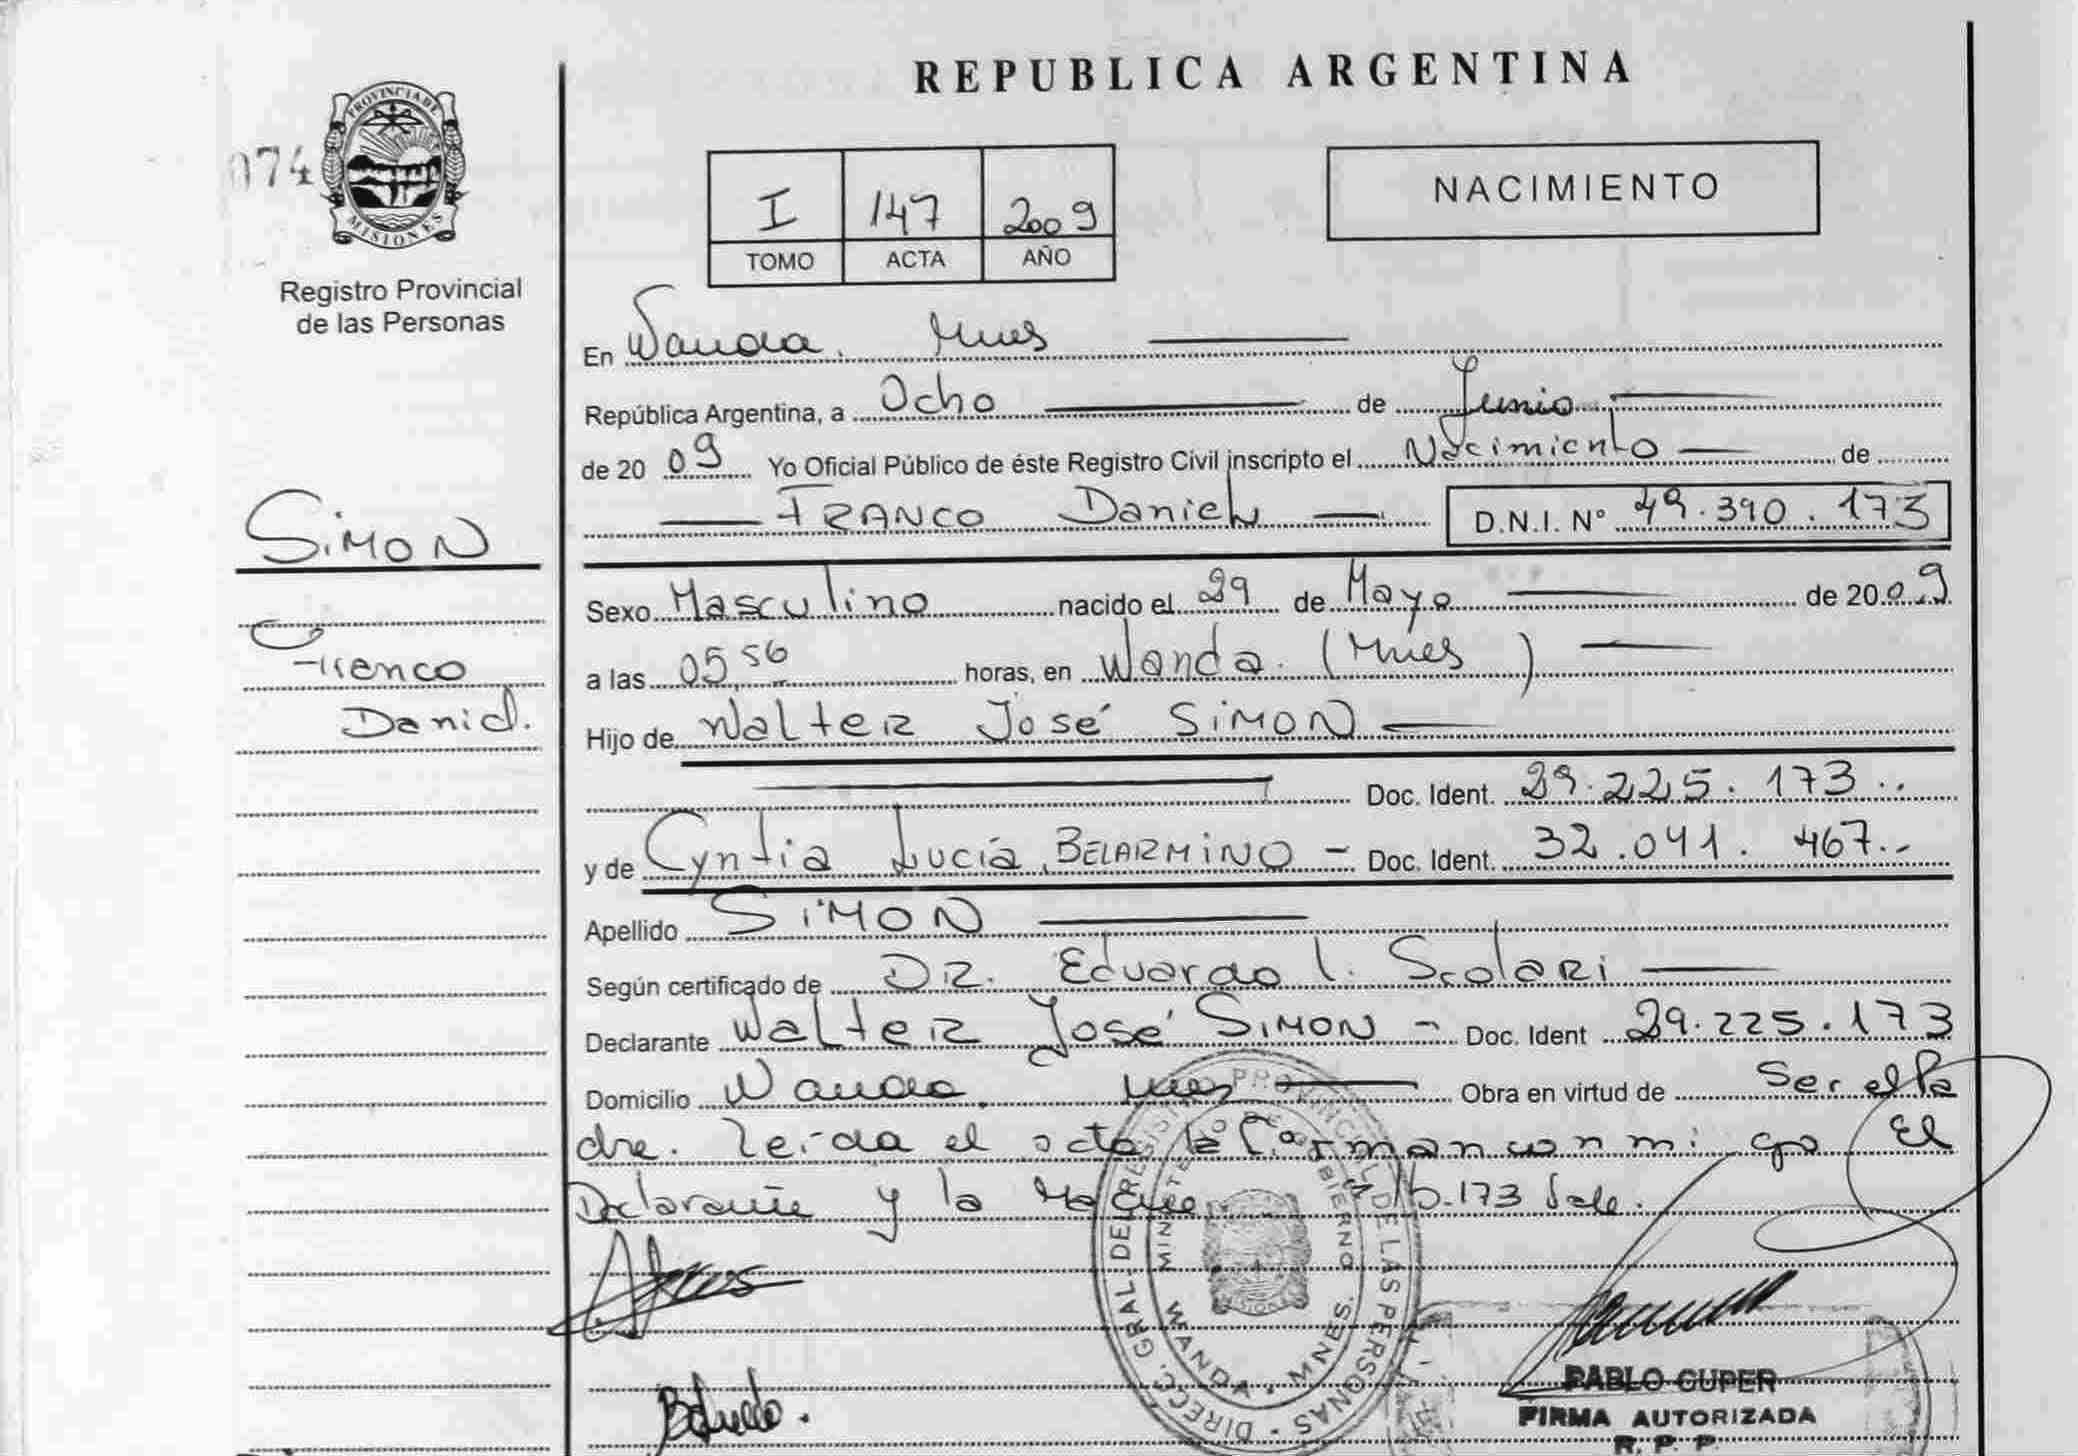 REPUBLICA ARGENTINA
074
PROVINCIA DE
MISIONES
Registro Provincial
de las Personas
I 147 2009
TOMO ACTA AÑO
NACIMIENTO
En Wanda. Mnes
República Argentina, a Ocho de Junio
de 20 09 Yo Oficial Público de éste Registro Civil inscripto el Nacimiento de
FRANCO Daniel D.N.I. Nº 49.390.173
SiMON
Franco
Daniel.
Sexo Masculino nacido el 29 de Mayo de 2009
a las 05,56 horas, en Wanda. (Mnes)
Hijo de Walter José SiMON
Doc. Ident. 29.225.173..
y de Cyntia Lucía BELARMiNO - Doc. Ident. 32.041.467..
Apellido SiMON
Según certificado de DR. Eduardo l. Scolari
Declarante Walter José SiMON - Doc. Ident 29.225.173
Domicilio Wanda. Mnes Obra en virtud de Ser el Pa
dre. Leída el acta la firman conmigo El
Declarante y la Madre 173 Vale.
DIREC. GRAL. DEL REGISTRO PROVINCIAL DE LAS PERSONAS
MINISTERIO DE GOBIERNO
WANDA - MNES.
PABLO CUPER
FIRMA AUTORIZADA
R. P. P.